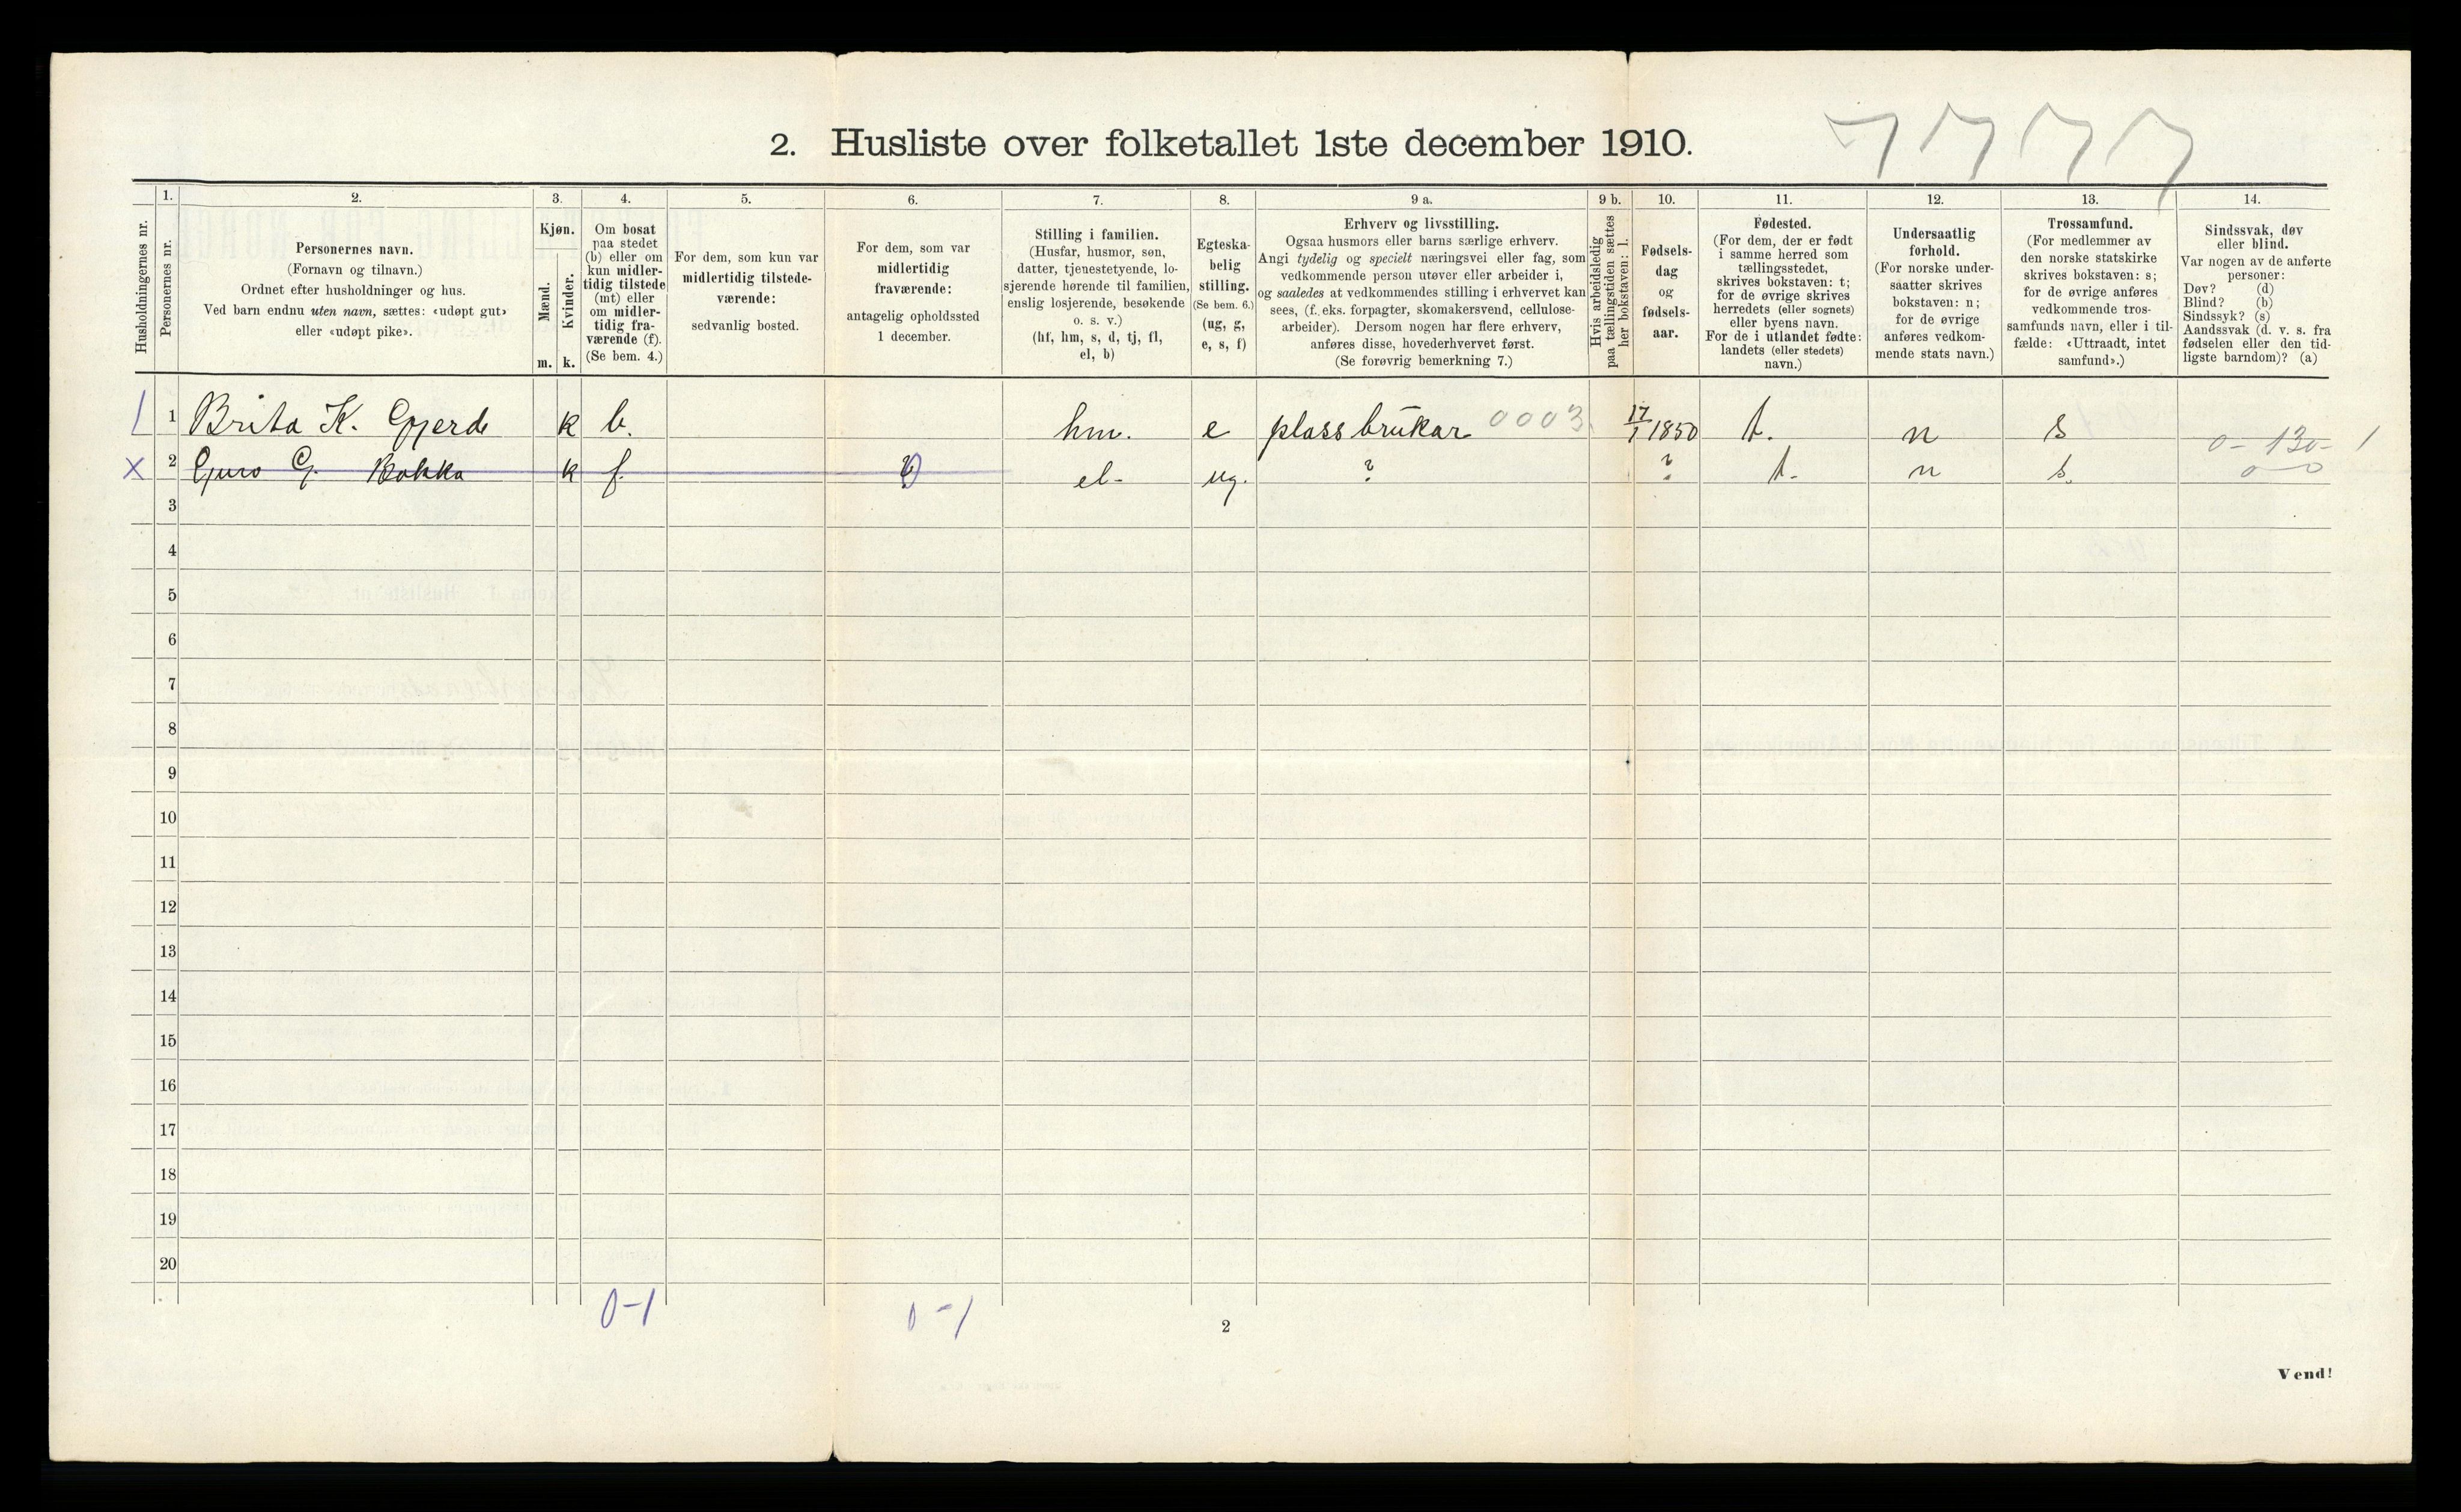 2. Husliste over folketallet 1ste december 1910.
7 7 7 7
Husholdningernes nr.
1.
Personernes nr.
2.
Personernes navn.
(Fornavn og tilnavn.)
Ordnet efter husholdninger og hus.
Ved barn endnu uten navn, sættes: «udøpt gut»
eller «udøpt pike».
3.
Kjøn.
Mænd.
m.
Kvinder.
k.
4.
Om bosat
paa stedet
(b) eller om
kun midler-
tidig tilstede
(mt) eller
om midler-
tidig fra-
værende (f).
(Se bem. 4.)
5.
For dem, som kun var
midlertidig tilstede-
værende:
sedvanlig bosted.
6.
For dem, som var
midlertidig
fraværende:
antagelig opholdssted
1 december.
7.
Stilling i familien.
(Husfar, husmor, søn,
datter, tjenestetyende, lo-
sjerende hørende til familien,
enslig losjerende, besøkende
o. s. v.)
(hf, hm, s, d, tj, fl,
el, b)
8.
Egteska-
belig
stilling.
(Se bem. 6.)
(ug, g,
e, s, f)
9 a.
Erhverv og livsstilling.
Ogsaa husmors eller barns særlige erhverv.
Angi tydelig og specielt næringsvei eller fag, som
vedkommende person utøver eller arbeider i,
og saaledes at vedkommendes stilling i erhvervet kan
sees, (f. eks. forpagter, skomakersvend, cellulose-
arbeider). Dersom nogen har flere erhverv,
anføres disse, hovederhvervet først.
(Se forøvrig bemerkning 7.)
9 b.
Hvis arbeidsledig
paa tællingstiden sættes
her bokstaven: l.
10.
Fødsels-
dag
og
fødsels-
aar.
11.
Fødested.
(For dem, der er født
i samme herred som
tællingsstedet,
skrives bokstaven: t;
for de øvrige skrives
herredets (eller sognets)
eller byens navn.
For de i utlandet fødte:
landets (eller stedets)
navn.)
12.
Undersaatlig
forhold.
(For norske under-
saatter skrives
bokstaven: n;
for de øvrige
anføres vedkom-
mende stats navn.)
13.
Trossamfund.
(For medlemmer av
den norske statskirke
skrives bokstaven: s;
for de øvrige anføres
vedkommende tros-
samfunds navn, eller i til-
fælde: «Uttraadt, intet
samfund».)
14.
Sindssvak, døv
eller blind.
Var nogen av de anførte
personer:
Døv? (d)
Blind? (b)
Sindssyk? (s)
Aandssvak (d. v. s. fra
fødselen eller den tid-
ligste barndom)? (a)
1 Brita K. Gjerde k b. hm. e plassbrukar 0003 17/1 1850 t. n s 0-130-1
x 2 Guro G. Bakka k f. ? el- ug. ? ? t. n s. 0-0
3
4
5
6
7
8
9
10
11
12
13
14
15
16
17
18
19
20
0-1 0-1
2
Vend!